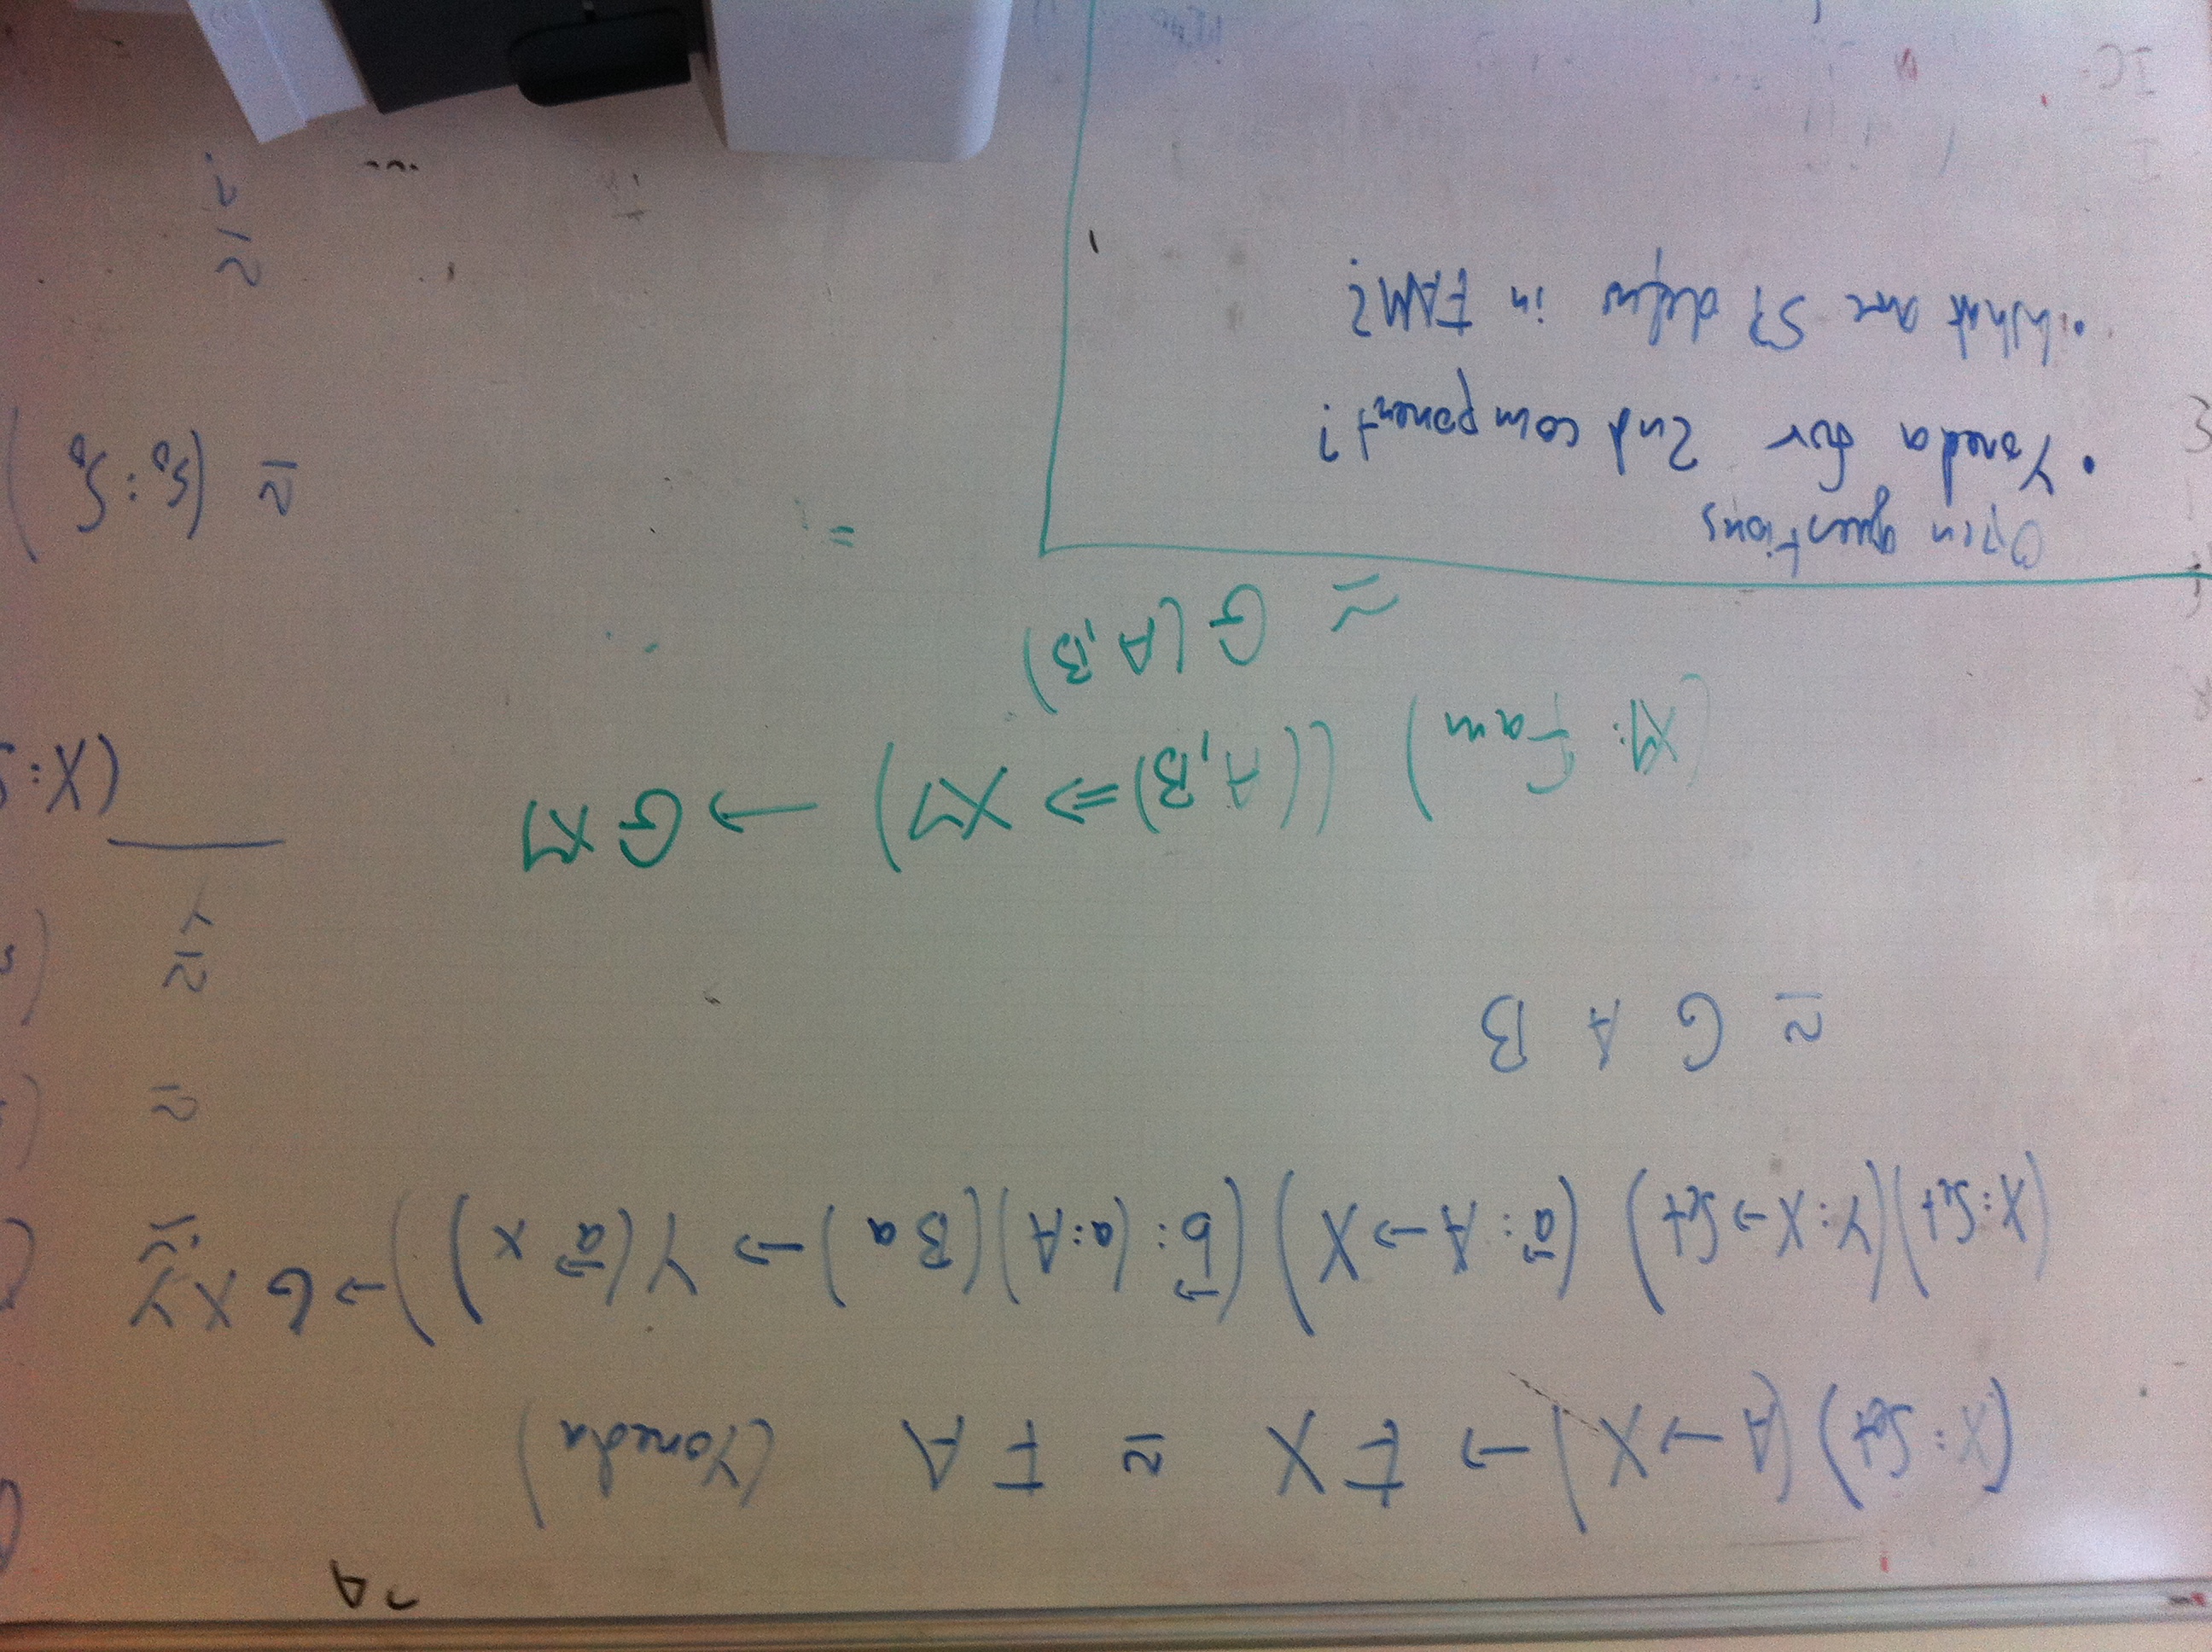 ¬A
(X: Set) (A → X) → F X ≅ F A (Yoneda)
(X: Set) (Y: X → Set) (a⃗: A → X) (b⃗: (a:A) (B a) → Y (a⃗ x)) → G X Y
≅
≅ G A B
≅
≅
Y
(XY: Fam) ((A,B) ⇒ XY) → G XY
(X:
≅ G (A,B)
Open questions
• Yoneda for 2nd component?
• What are SP defns in FAM?
=
≅ (s₀ : S₀)
≅
?